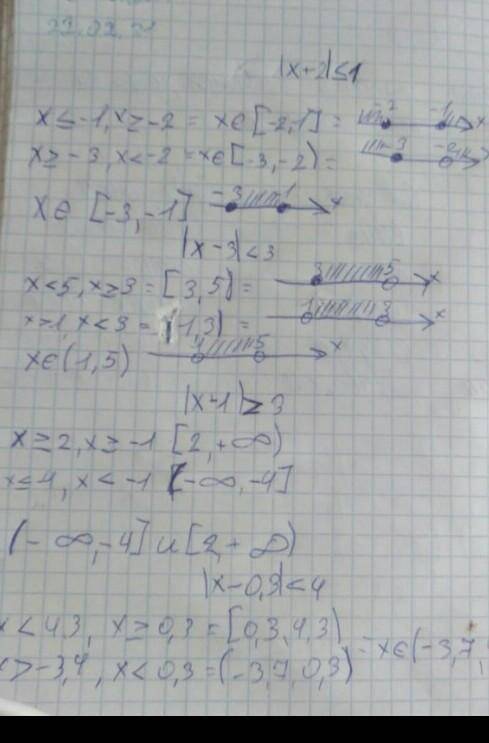 |x+2|≤1
x≤-1, x≥-2 = x∈[-2,-1] = -2 -1 x
x≥-3, x<-2 = x∈[-3,-2) = -3 -2 x
x∈ [-3,-1] -3 -1 x
|x-3|<3
x<5, x≥3 = [3,5) = 3 5 x
x>1, x<3 = (1,3) = 1 3 x
x∈(1,5) 1 5 x
≥3
x≥2, x≥-1 [2,+∞)
x≤-4, x<-1 (-∞,-4]
(-∞,-4] и [2,+∞)
|x-0,3|<4
x<4,3, x≥0,3 = [0,3, 4,3)
x>-3,7, x<0,3 = (-3,7, 0,3) = x∈(-3,7,